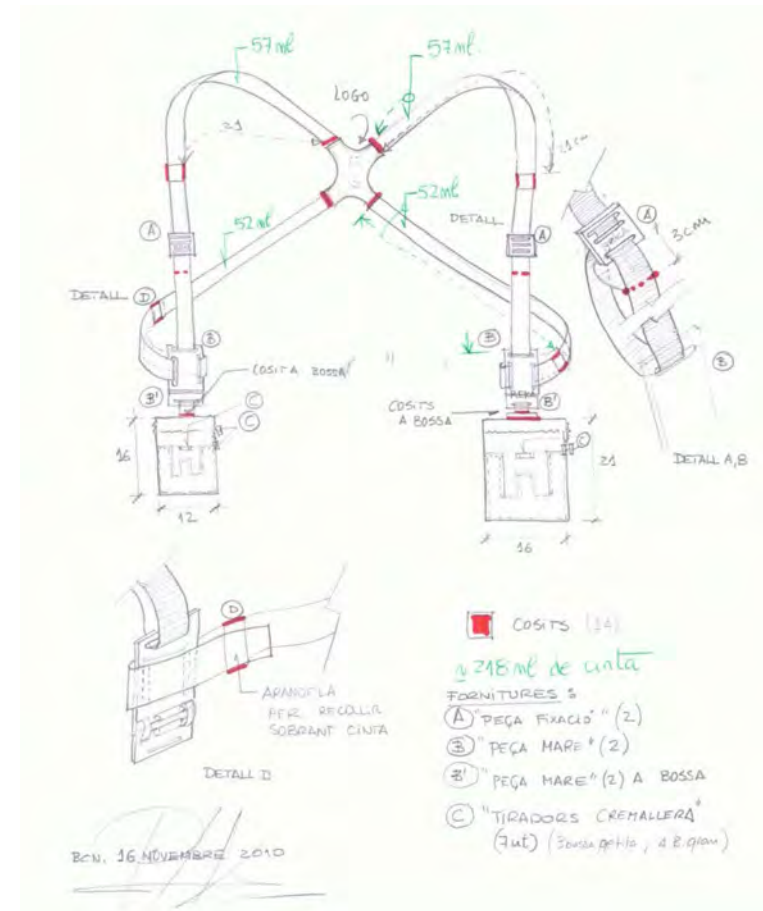 57ml
57ml.
LOGO
21
21cm
52ml
52ml
DETALL
A
A
A
3cm
DETALL D
B
B
B
COSIT A BOSSA
"
B'
B'
C
C
C
COSITS
A BOSSA
16
12
21
16
DETALL A,B
D
APANOLLA
PER RECOLLIR
SOBRANT CINTA
DETALL D
COSITS (14)
~218 ml de cinta
FORNITURES :
A "PEÇA FIXACIÓ" (2)
B "PEÇA MARE" (2)
B' "PEÇA MARE" (2) A BOSSA
C "TIRADORS CREMALLERA"
BCN. 16 NOVEMBRE 2010